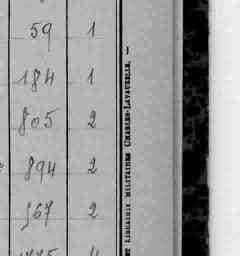 59 1
184 1
805 2
894 2
567 2
ET LIBRAIRIE MILITAIRES CHARLES-LAVAUZELLE. —